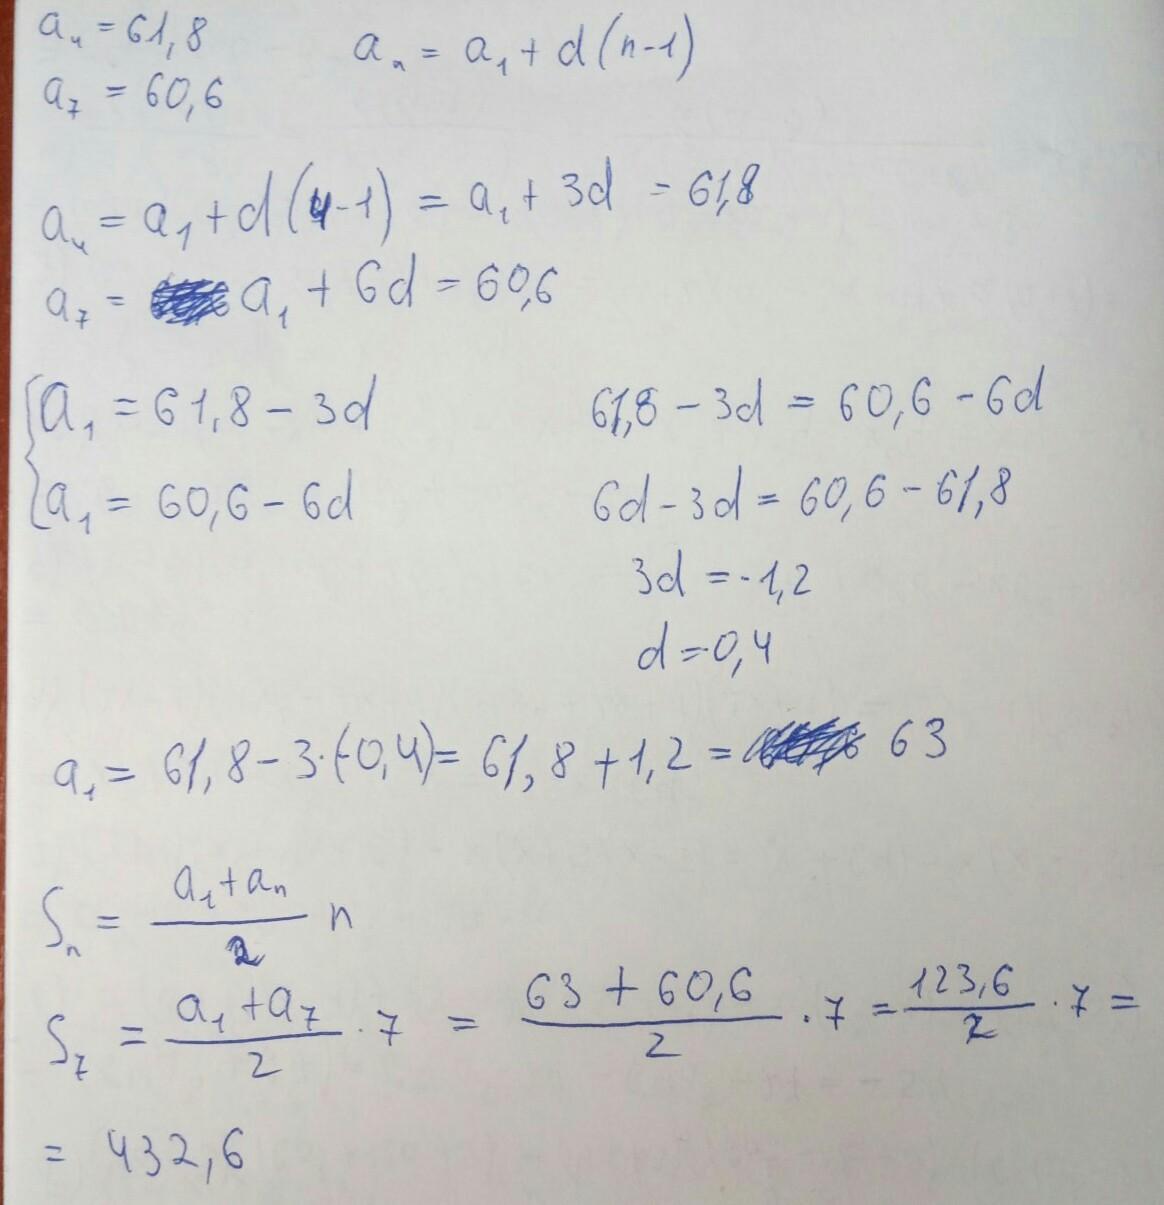 a₄ = 61,8
a₇ = 60,6
aₙ = a₁ + d(n-1)
a₄ = a₁ + d(4-1) = a₁ + 3d = 61,8
a₇ = a₁ + 6d = 60,6
a₁ = 61,8 - 3d
a₁ = 60,6 - 6d
61,8 - 3d = 60,6 - 6d
6d - 3d = 60,6 - 61,8
3d = -1,2
d = -0,4
a₁ = 61,8 - 3·(-0,4) = 61,8 + 1,2 = 63
Sₙ = (a₁ + aₙ)/2 n
S₇ = (a₁ + a₇)/2 · 7 = (63 + 60,6)/2 · 7 = 123,6/2 · 7 =
= 432,6